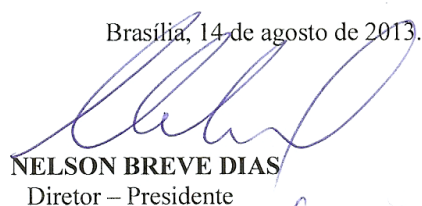 Brasília, 14 de agosto de 2013.
NELSON BREVE DIAS
Diretor – Presidente